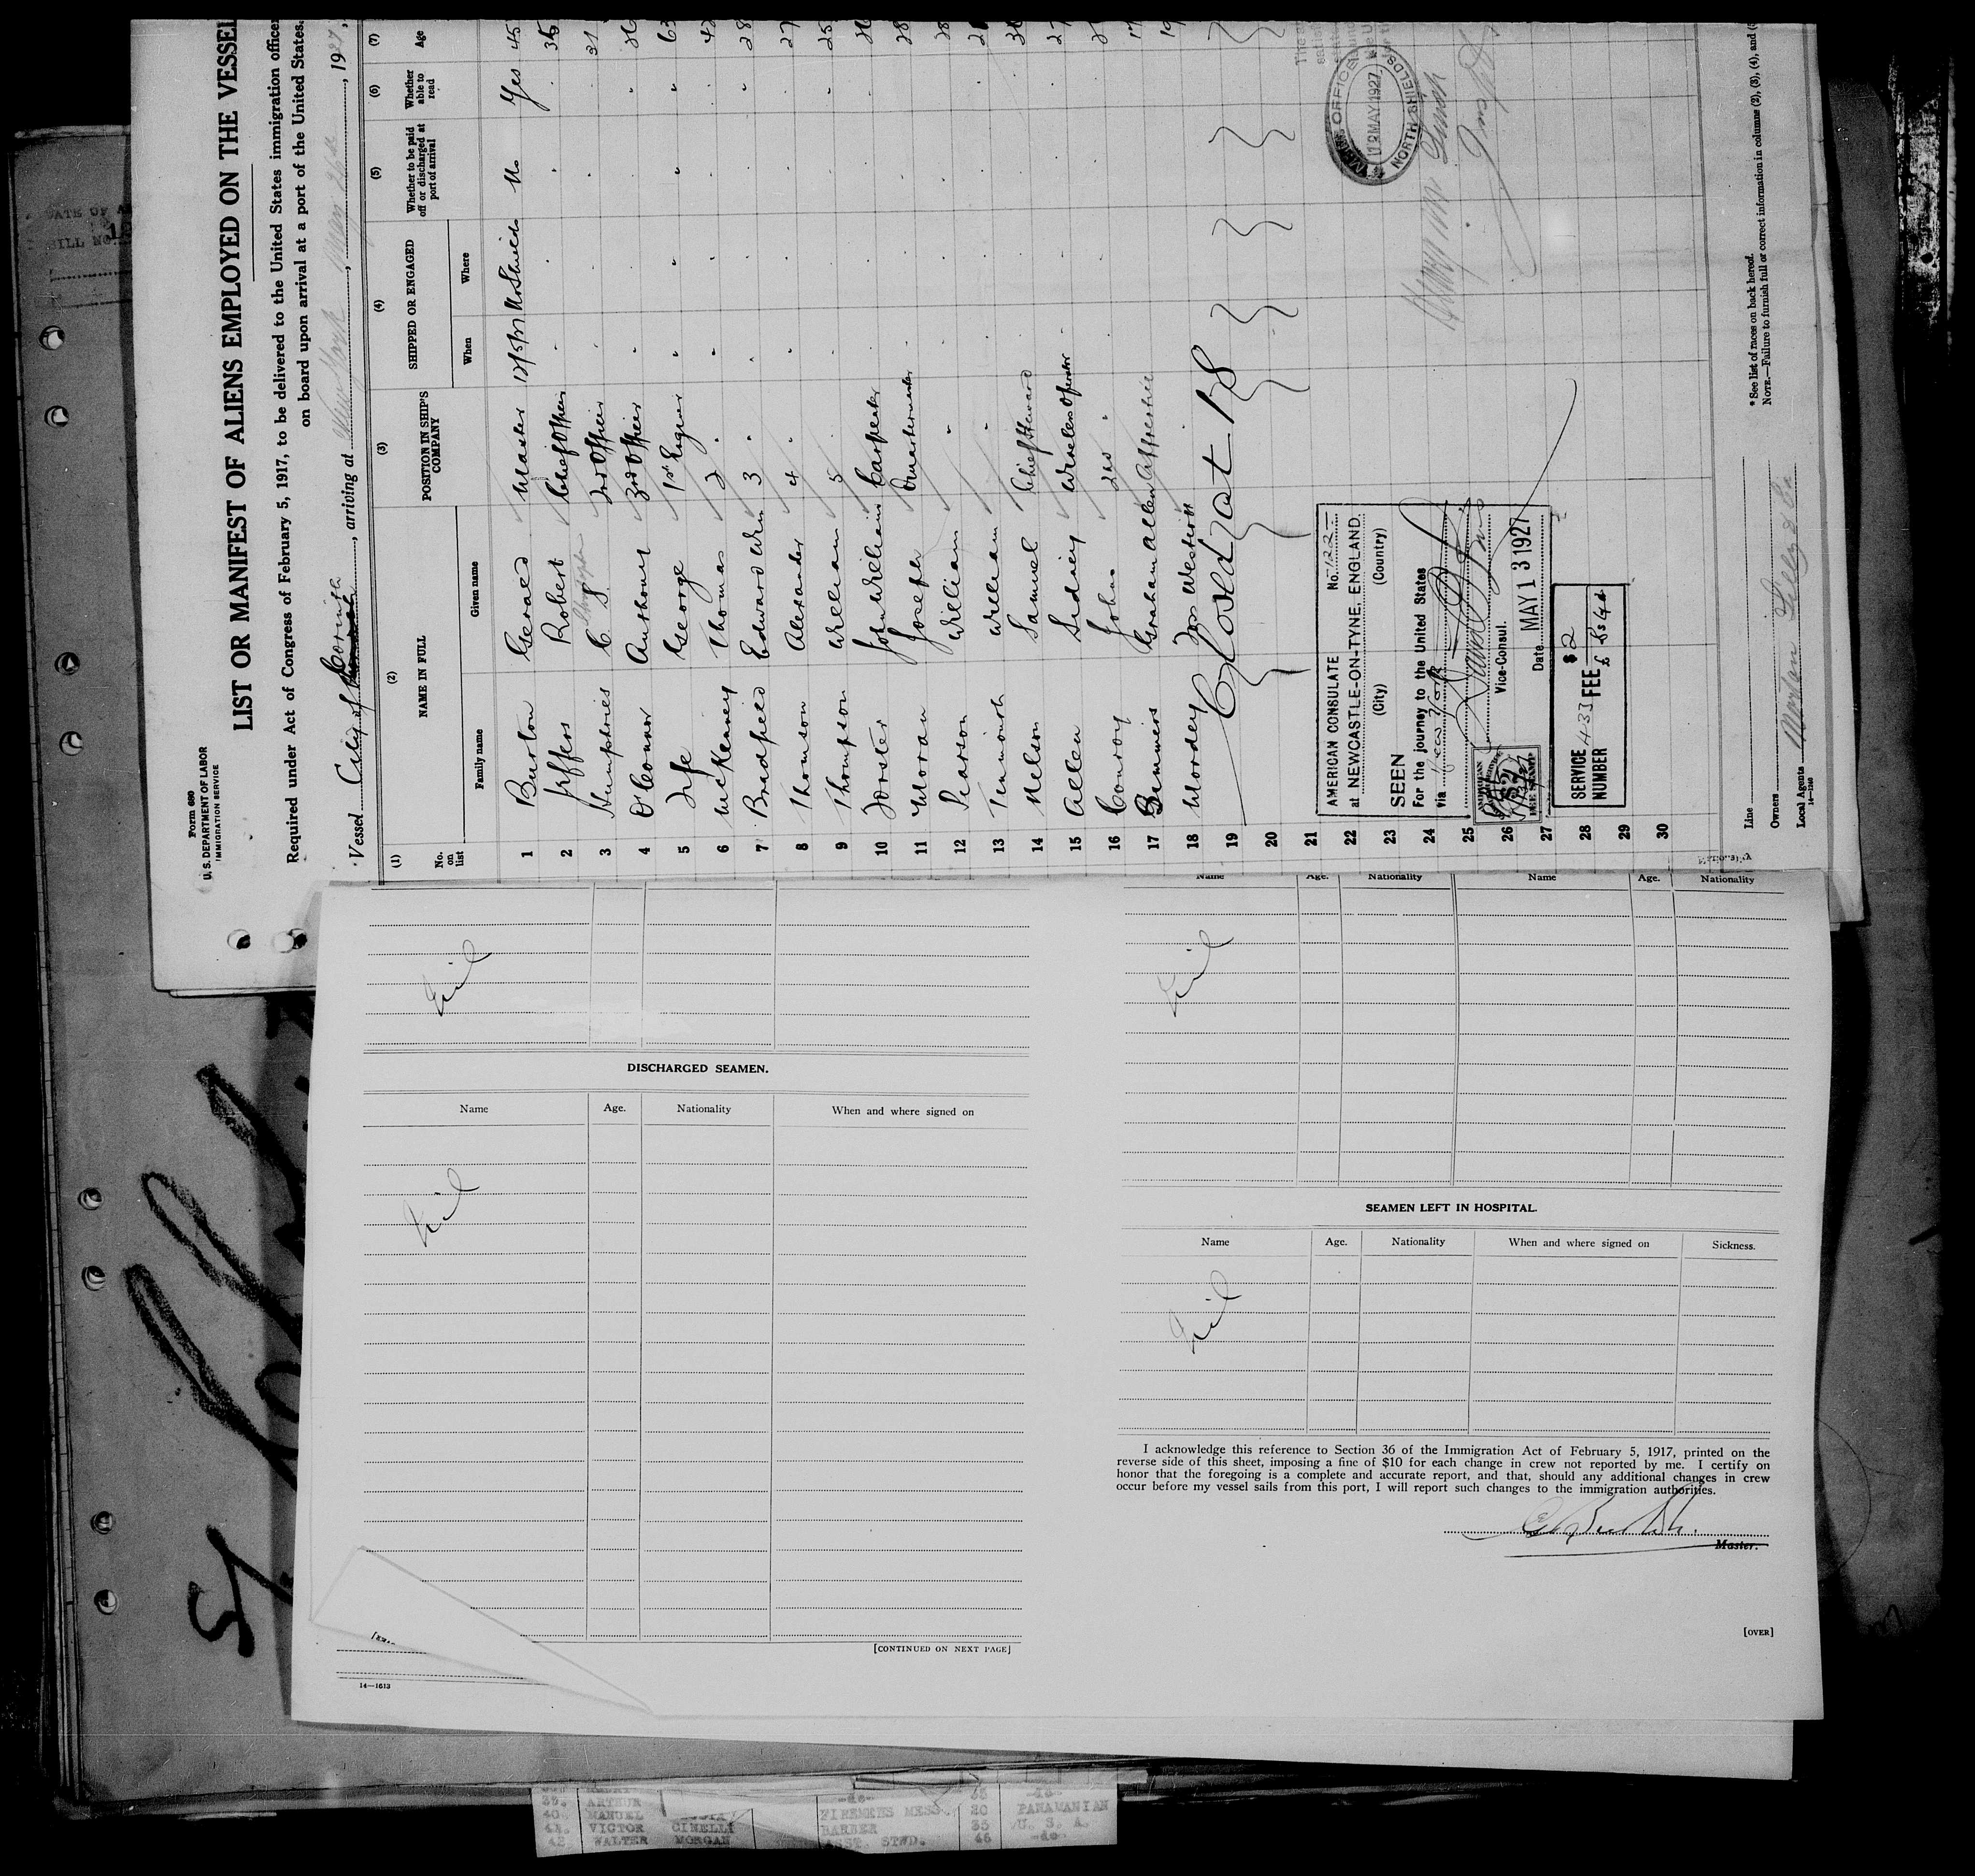 Form 680
U. S. DEPARTMENT OF LABOR
IMMIGRATION SERVICE
LIST OR MANIFEST OF ALIENS EMPLOYED ON THE VESSEL
Required under Act of Congress of February 5, 1917, to be delivered to the United States immigration officer
on board upon arrival at a port of the United States.
Vessel City of Corinth, arriving at New York, 1927,
(1) (2) (3) (4) (5) (6) (7)
No. on list NAME IN FULL POSITION IN SHIP'S COMPANY SHIPPED OR ENGAGED Whether to be paid off or discharged at port of arrival Whether able to read Age
Family name Given name When Where
1 Burton Gerard Master N. Shields No Yes 45
2 Jeffers Robert Chief Officer
3 Humphries C. S. 2nd Officer 31
4 O'Connor Anthony 3rd Officer 26
5 Fyfe George 1st Engineer " " " " 63
6 McKenney Thomas 2 " 42
7 Bradfield Edward Wm 3 " 28
8 Thomson Alexander 4 " 27
9 Thompson William 5 25
10 Forster John William Carpenter 26
11 Moran Joseph Quartermaster 28
12 Pearson William " 28
13 William "
14 Nelson Samuel Chief Steward
15 Allen Sidney Wireless Operator 27
16 Conroy John 2nd "
17 Graham Allen Apprentice 17
18 Mordey Jos Weston 19
19 Closed at 18
20
21
22
23
24
25
26
27
28
29
30
AMERICAN CONSULATE No. 122
at NEWCASTLE-ON-TYNE, ENGLAND
(City) (Country)
SEEN
For the journey to the United States
via New York
Vice-Consul.
Date MAY 13 1927
SERVICE NUMBER 433 FEE $2
OFFICE
12 MAY 1927
NORTH SHIELDS
Line
Owners
Local Agents Norton Lilly & Co
14-1240
* See list of races on back hereof.
NOTE.—Failure to furnish full or correct information in columns (2), (3), (4), and (5
Name Age. Nationality Name Age. Nationality
DISCHARGED SEAMEN.
Name Age. Nationality When and where signed on
[CONTINUED ON NEXT PAGE]
14—1613
SEAMEN LEFT IN HOSPITAL.
Name Age. Nationality When and where signed on Sickness.
I acknowledge this reference to Section 36 of the Immigration Act of February 5, 1917, printed on the
reverse side of this sheet, imposing a fine of $10 for each change in crew not reported by me. I certify on
honor that the foregoing is a complete and accurate report, and that, should any additional changes in crew
occur before my vessel sails from this port, I will report such changes to the immigration authorities.
Master.
[OVER]
39. ARTHUR -do- -do-
40. MANUEL FIREMENS MESS. 20 PANAMANIAN
41. VICTOR CINELLI BARBER 35 U. S. A.
42 WALTER MORGAN ASST. STWD. 46 -do-